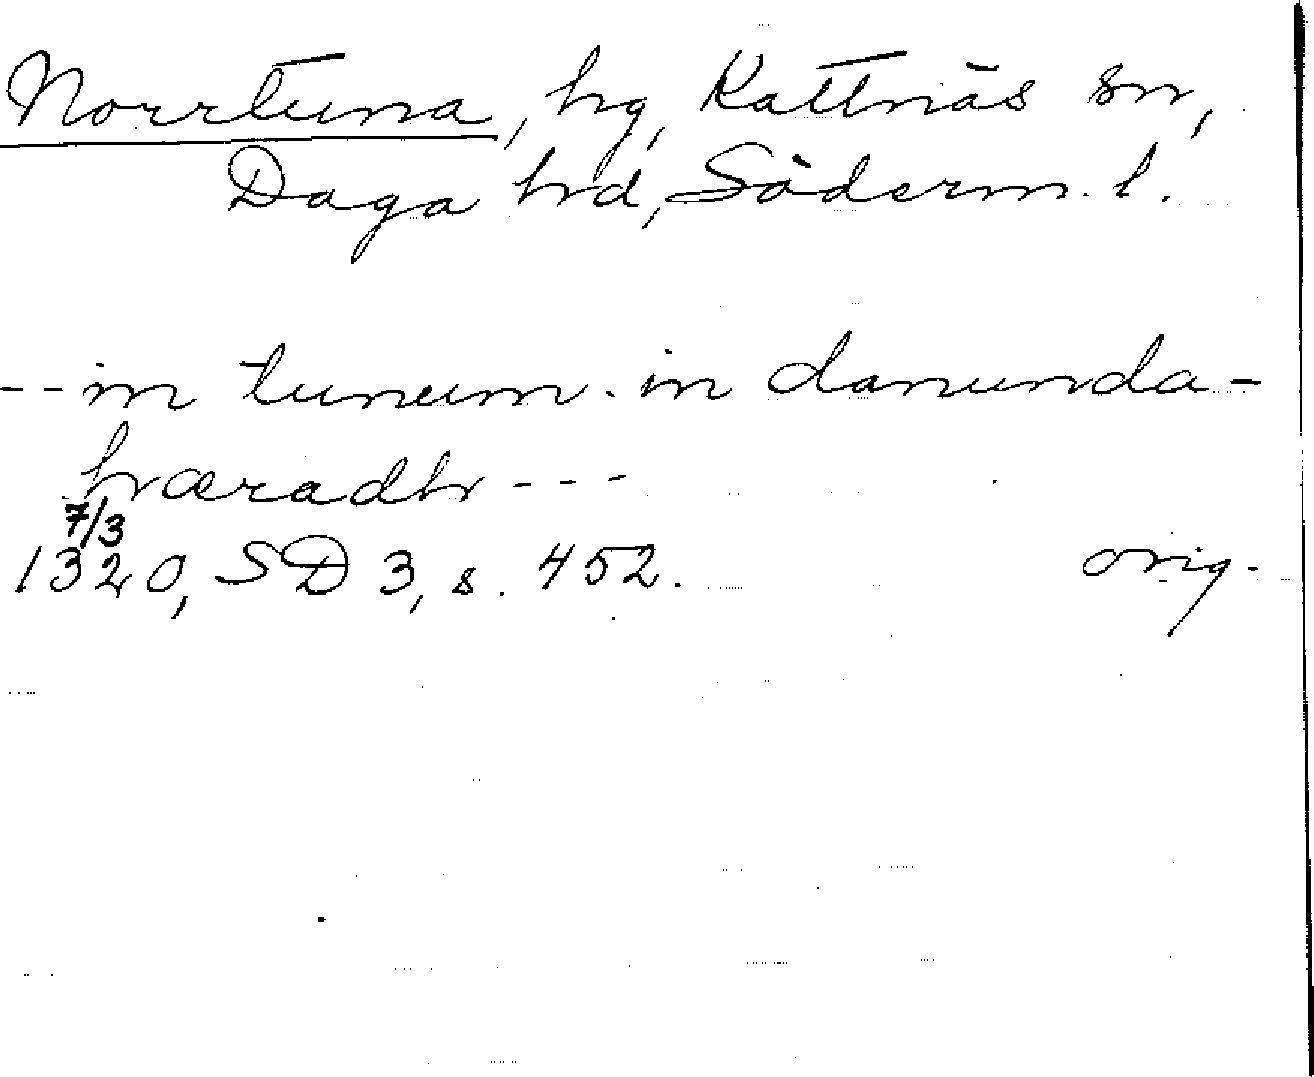 Norrtuna, hg, Kattnäs sn,
Daga hd, Söderm. l.
-- in tunum. in danunda-
hæradh ---
7/3
1320, SD 3, s. 452. orig.